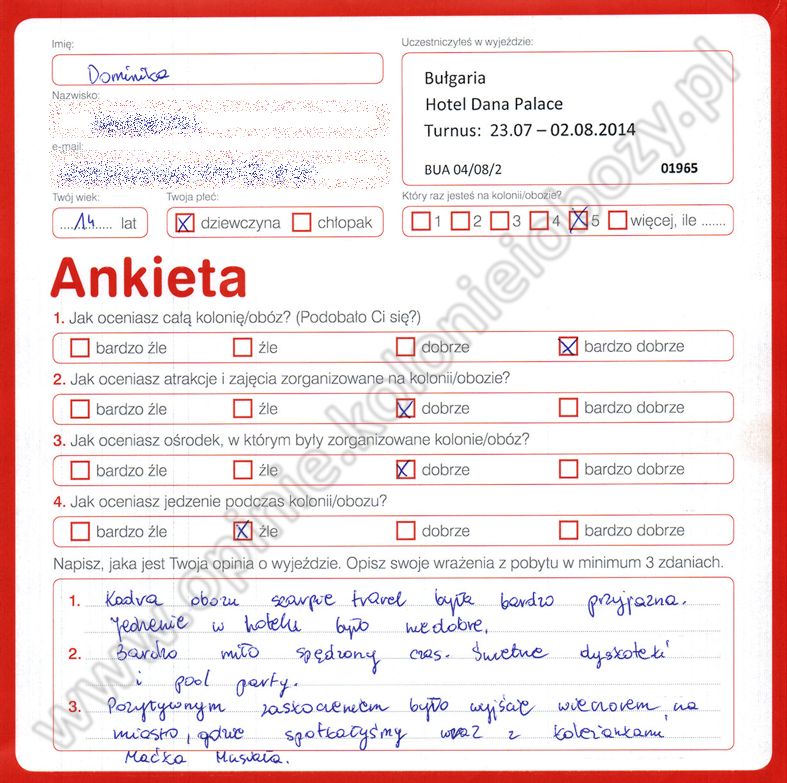 Imię:
Dominika
Nazwisko:
e-mail:
Twój wiek:
14 lat
Twoja płeć:
dziewczyna chłopak
Uczestniczyłeś w wyjeździe:
Bułgaria
Hotel Dana Palace
Turnus: 23.07 – 02.08.2014
BUA 04/08/2 01965
Który raz jesteś na kolonii/obozie?
1 2 3 4 5 więcej, ile .......
Ankieta
1. Jak oceniasz całą kolonię/obóz? (Podobało Ci się?)
bardzo źle źle dobrze bardzo dobrze
2. Jak oceniasz atrakcje i zajęcia zorganizowane na kolonii/obozie?
bardzo źle źle dobrze bardzo dobrze
3. Jak oceniasz ośrodek, w którym były zorganizowane kolonie/obóz?
bardzo źle źle dobrze bardzo dobrze
4. Jak oceniasz jedzenie podczas kolonii/obozu?
bardzo źle źle dobrze bardzo dobrze
Napisz, jaka jest Twoja opinia o wyjeździe. Opisz swoje wrażenia z pobytu w minimum 3 zdaniach.
1. Kadra obozu szarpie travel była bardzo przyjazna.
Jedzenie w hotelu było niedobre.
2. Bardzo miło spędzony czas. Świetne dyskoteki
i pool party.
3. Pozytywnym zaskoczeniem było wyjście wieczorem na
miasto, gdzie spotkałyśmy wraz z koleżankami
Maćka Musiała.
www.opinie.kolonieiobozy.pl